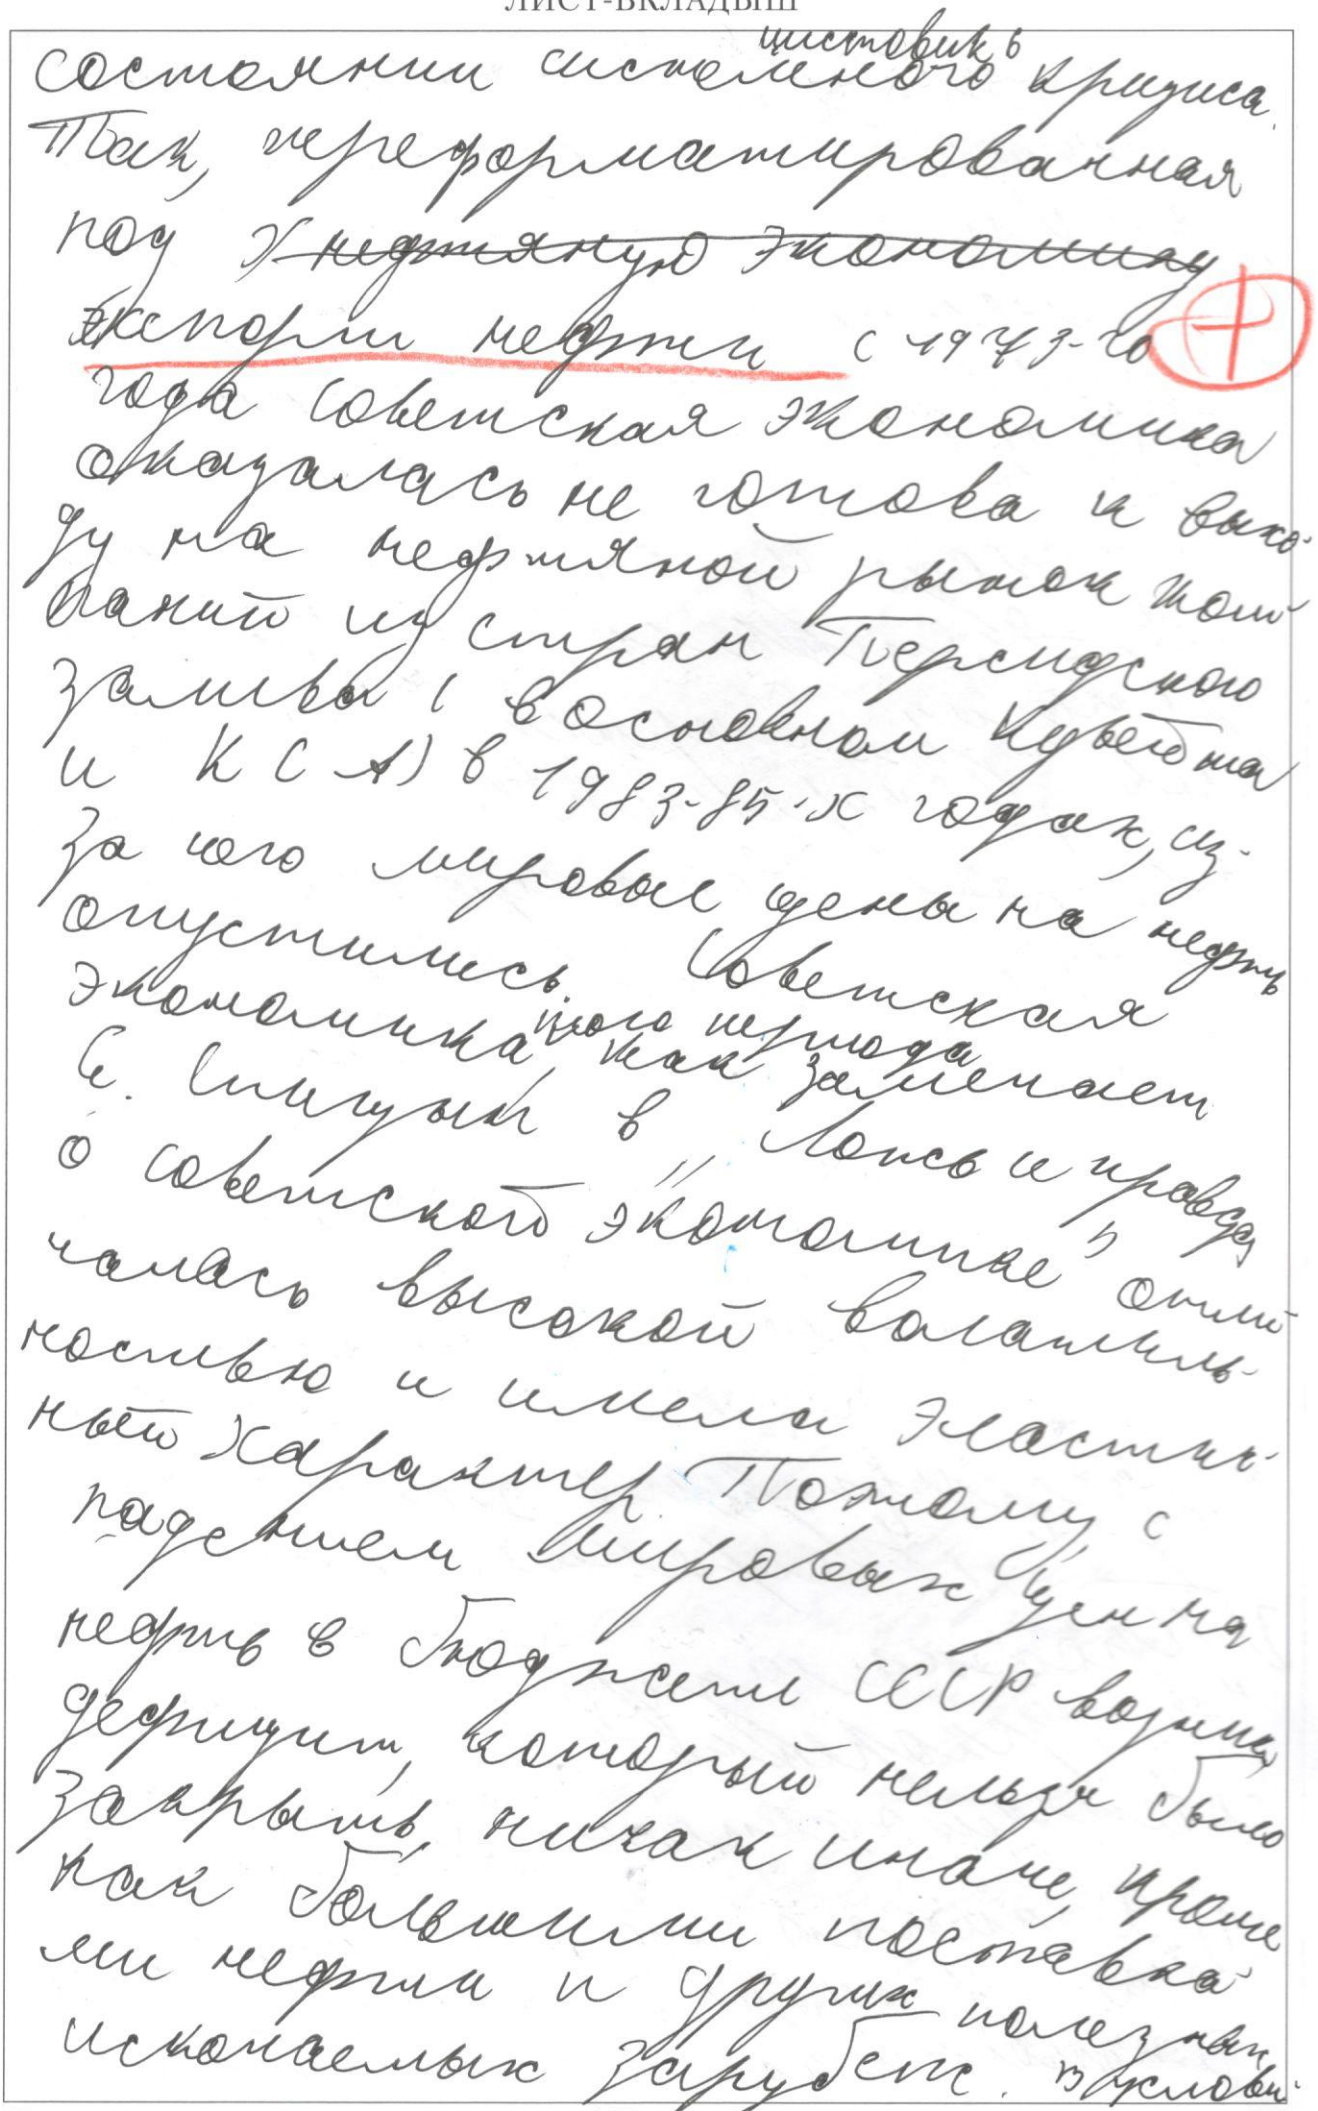 ЛИСТ-ВКЛАДЫШ
чистовик 6
состоянии системного кризиса.
Так, переформатированная
под нефтяную экономику
экспорт нефти с 1973-го
года советская экономика
оказалась не готова к выхо-
ду на нефтяной рынок ком-
паний из стран Персидского
залива (в основном Кувейта
и КСА) в 1983-85-х годах, из-
за чего мировые цены на нефть
опустились. Советская
этого периода
экономика, как замечает
Е. Спицын в „Ложь и правда
о советской экономике" отли-
чалась высокой волатиль-
ностью и имела эластич-
ный характер. Потому, с
падением мировых цен на
нефть в бюджете СССР возник
дефицит, который нельзя было
закрыть, никак иначе, кроме
как большими поставка-
ми нефти и других полезных
ископаемых зарубеж. В услови-